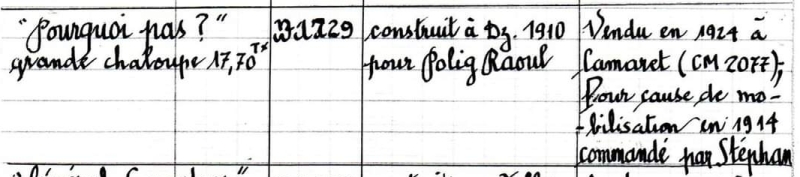 "Pourquoi pas ?"
grande chaloupe 17,70 Tx
DZ1729
construit à Dz. 1910
pour Polig Raoul
Vendu en 1924 à
Camaret (CM 2077);
Pour cause de mo-
-bilisation en 1914
commandé par Stéphan